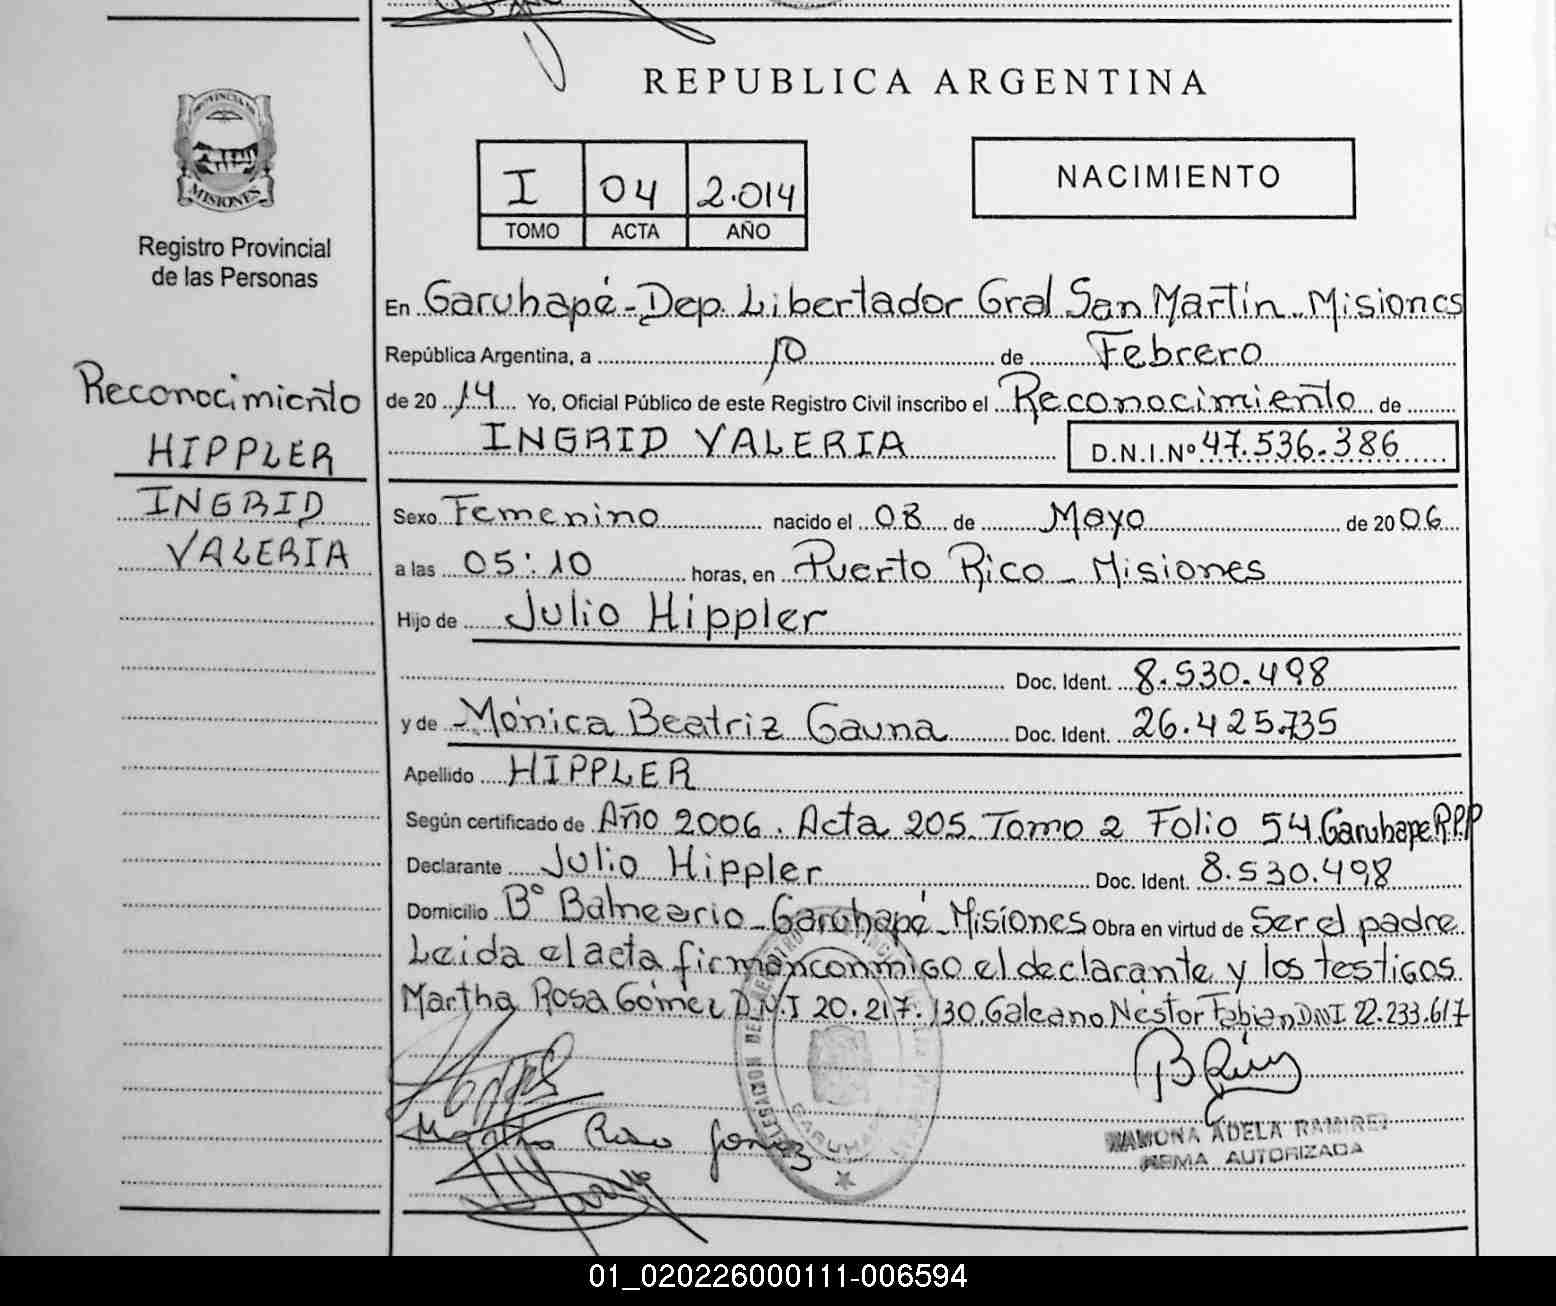 REPUBLICA ARGENTINA
PROVINCIA DE
MISIONES
Registro Provincial
de las Personas
I 04 2.014
TOMO ACTA AÑO
NACIMIENTO
Reconocimiento
HIPPLER
INGRID
VALERIA
En Garuhapé - Dep. Libertador Gral San Martín - Misiones
República Argentina, a 10 de Febrero
de 2014 Yo, Oficial Público de este Registro Civil inscribo el Reconocimiento de
INGRID VALERIA D.N.I.Nº 47.536.386
Sexo Femenino nacido el 08 de Mayo de 2006
a las 05:10 horas, en Puerto Rico - Misiones
Hijo de Julio Hippler
Doc. Ident. 8.530.498
y de Mónica Beatriz Gauna Doc. Ident. 26.425.735
Apellido HIPPLER
Según certificado de Año 2006. Acta 205. Tomo 2 Folio 54. Garuhape R.P.P
Declarante Julio Hippler Doc. Ident. 8.530.498
Domicilio Bº Balneario - Garuhapé - Misiones Obra en virtud de Ser el padre
Leida el acta firman conmigo el declarante y los testigos
Martha Rosa Gómez D.N.I 20.217.130. Galeano Néstor Fabian DNI 22.233.617
Martha Rosa Gomez
GARUHAPE
RAMONA ADELA RAMIREZ
FIRMA AUTORIZADA
01_020226000111-006594